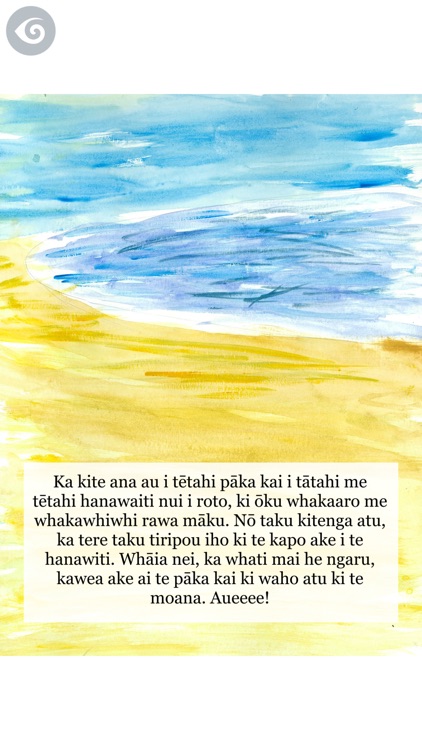 Ka kite ana au i tētahi pāka kai i tātahi me
tētahi hanawaiti nui i roto, ki ōku whakaaro me
whakawhiwhi rawa māku. Nō taku kitenga atu,
ka tere taku tiripou iho ki te kapo ake i te
hanawiti. Whāia nei, ka whati mai he ngaru,
kawea ake ai te pāka kai ki waho atu ki te
moana. Aueeee!